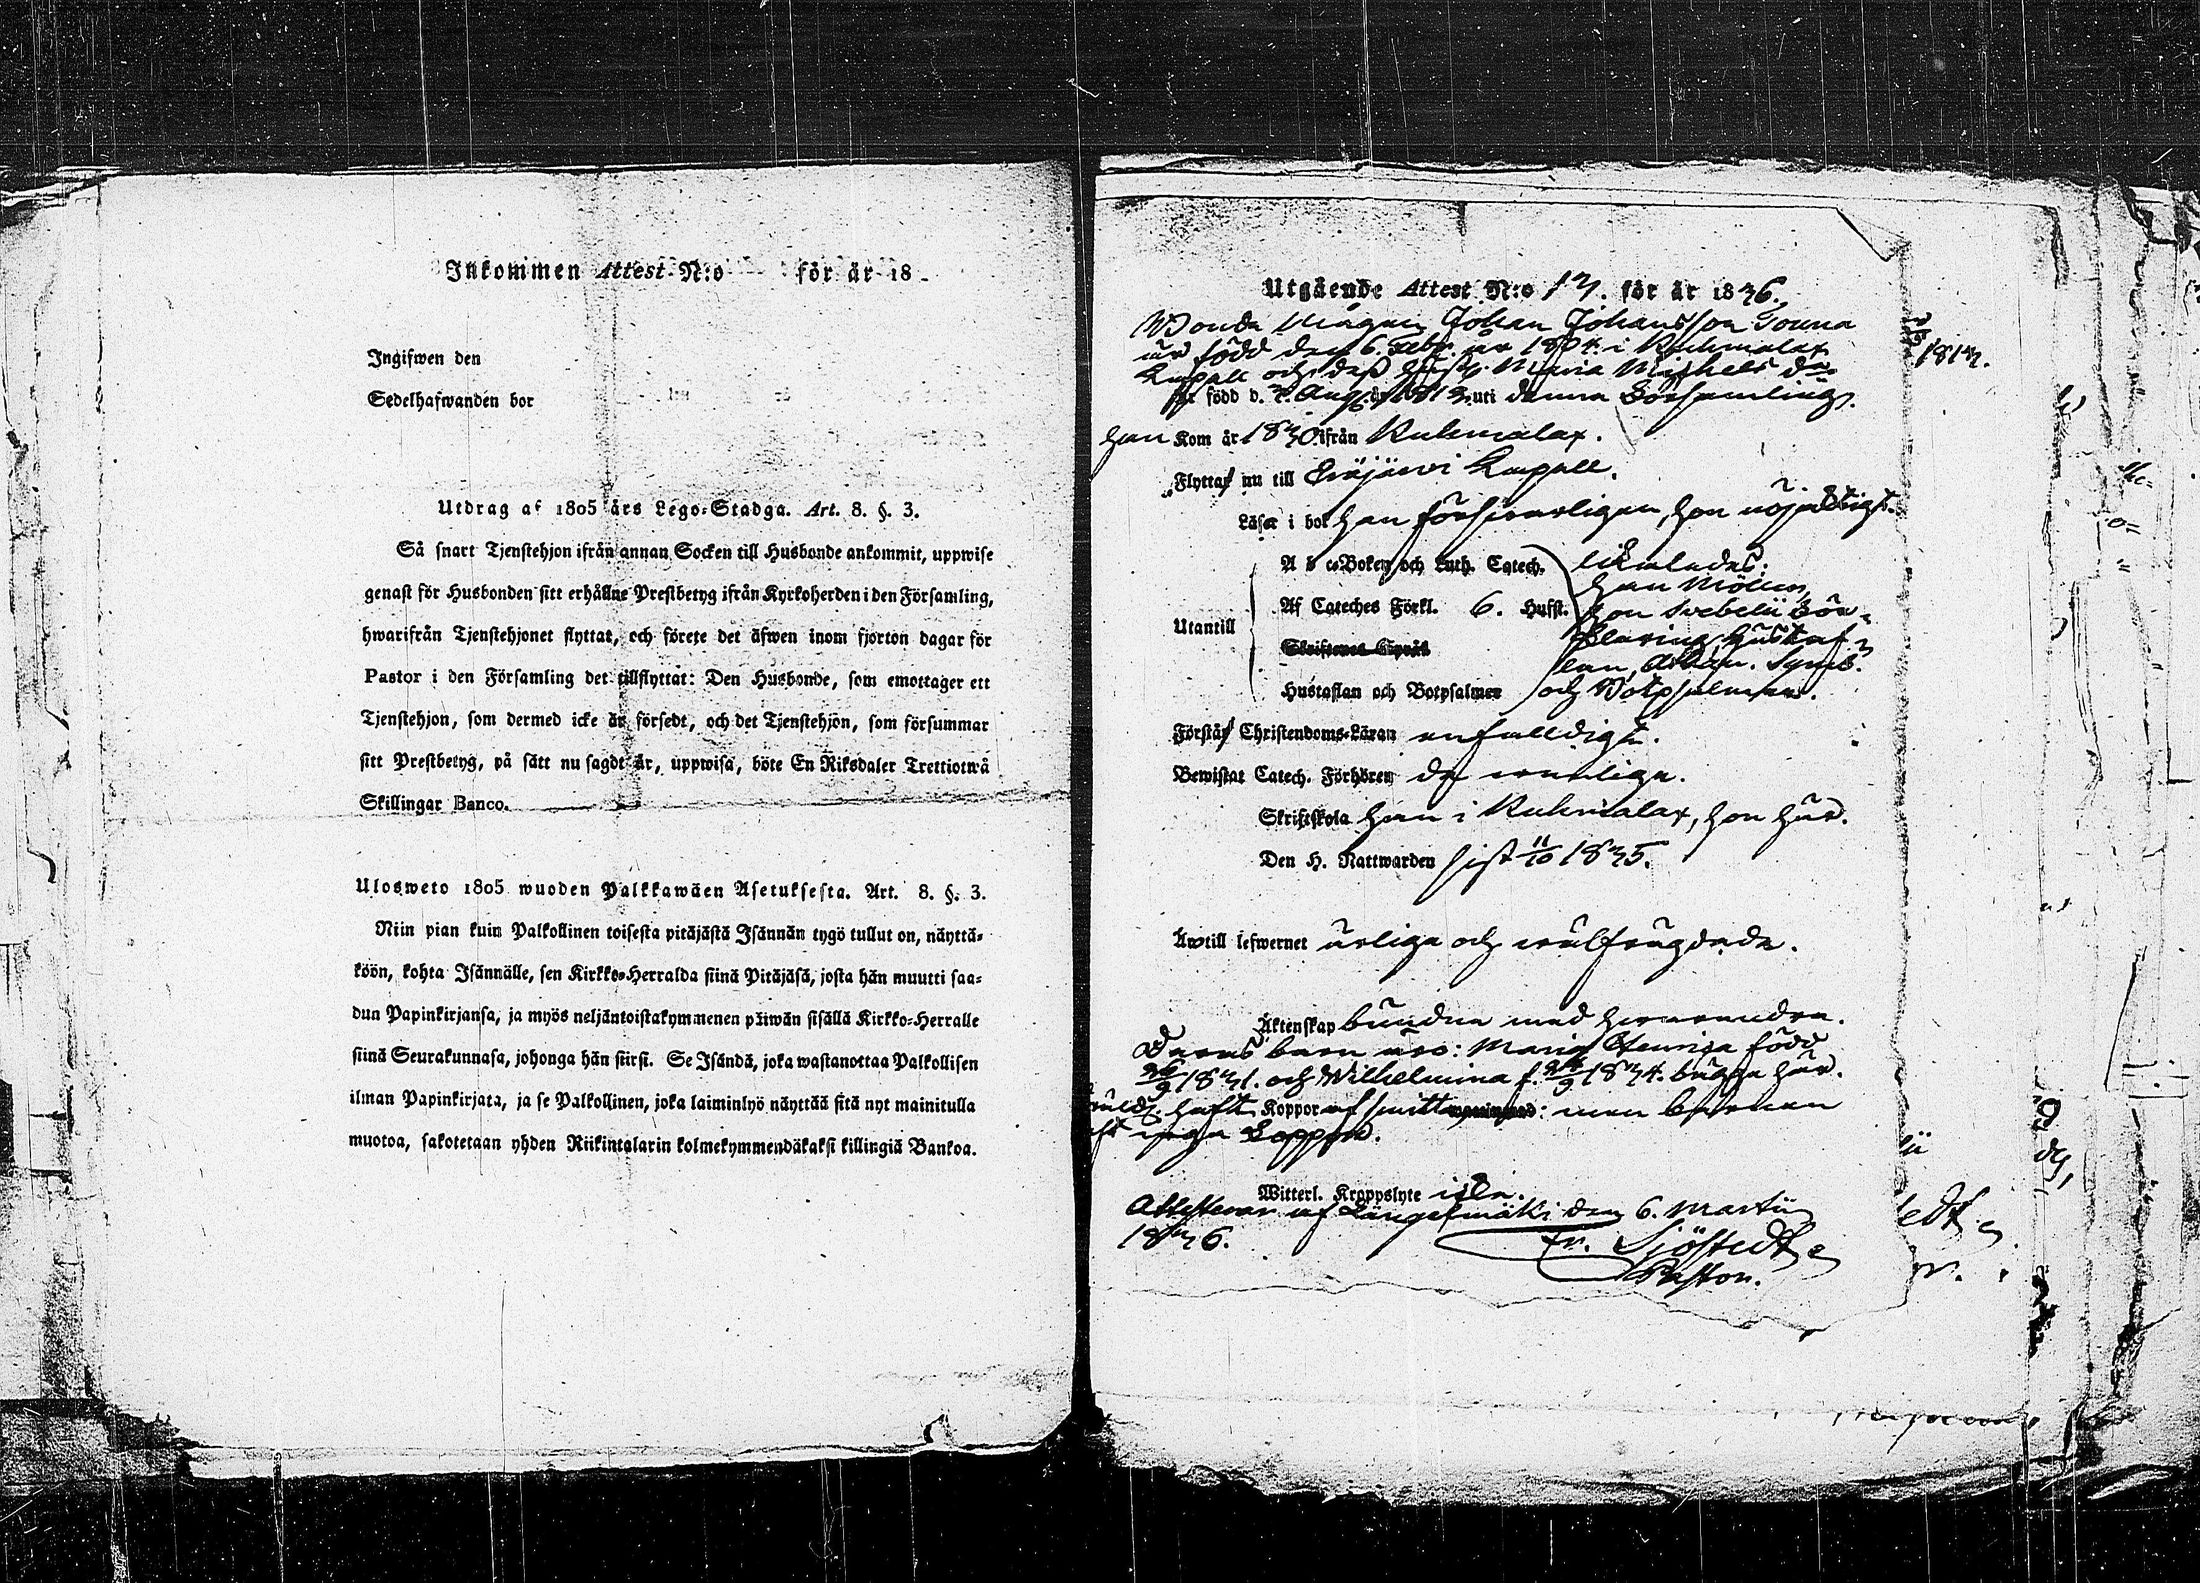 Inkommen Attest N:o för är 18
Ingifwen den
Sedelhafwanden bor
Utdrag af 1805 års Lego-Stadga. Art. 8. §. 3.
Så snart Tjenstehjon ifrån annan Socken till Husbonde ankommit, uppwise
genast för Husbonden sitt erhållne Prestbetyg ifrån Kyrkoherden i den Församling,
hwarifrån Tjenstehjonet flyttat, och förete det äfwen inom fjorton dagar för
Pastor i den Församling det tillflyttat: Den Husbonde, som emottager ett
Tjenstehjon, som dermed icke är försedt, och det Tjenstehjon, som försummar
sitt Prestbetyg, på sätt nu sagdt är, uppwisa, böte En Riksdaler Trettiotwå
Skillingar Banco.
Ulosweto 1805 wuoden Palkkawäen Asetuksesta. Art. 8. §. 3.
Niin pian kuin Palkollinen toisesta pitäjästä Isännän tygö tullut on, näyttä-
köön, kohta Isännälle, sen Kirkko-Herralda siinä Pitäjäsä, josta hän muutti saa-
dun Papinkirjansa, ja myös neljäntoistakymmenen päiwän sisällä Kirkko-Herralle
siinä Seurakunnasa, johonga hän siirsi. Se Isändä, joka wastanottaa Palkollisen
ilman Papinkirjata, ja se Palkollinen, joka laiminlyö näyttää sitä nyt mainitulla
muotoa, sakotetaan yhden Riikintalarin kolmekymmendäkaksi killingiä Bankoa.
Utgående Attest N:o 13. för är 1836.
Bonde Mågen Johan Johansson Touna
är född den 6. Febr. år 1804. i Kuhmalax
Kapell och dess Hustr. Maria Michels dr
är född d. 3. Aug. 1813. uti denna Församling.
1813.
han Kom är 1830. ifrån Kuhmalax.
Flytta nu till Eräjärvi Kapell.
Läser i bok han försvarligen, hon nöjaktigt.
Utantill
A b c-Boken och Luth. Catech. likaledes.
Af Cateches Förkl. 6. Hufst. han Möllers,
hon Svebelii För-
klaring, Hustaf-
lan, Athan. Symb.
Skriftenes Språk
Hustaflan och Botpsalmer och Botpsalmer.
Förstå Christendoms-Läran enfalldigt.
Bewistat Catech. Förhören de vanliga.
Skriftskola han i Kuhmalax, hon här.
Den H. Nattwarden sist 11/10 1835.
Äwtill lefwernet ärliga och välfrägdade.
Äktenskap bundna med hvarandra.
Deras barn äro: Maria Henrica född
26/9 1831. och Wilhelmina f. 24/9 1834. bägge här.
haft Koppor af smitta men barnen
inga koppor.
Witterl. Kroppslyte icke.
Attesterar af Längelmäki den 6. Martii
1836.
Fr. Sjöstedt
Pastor.